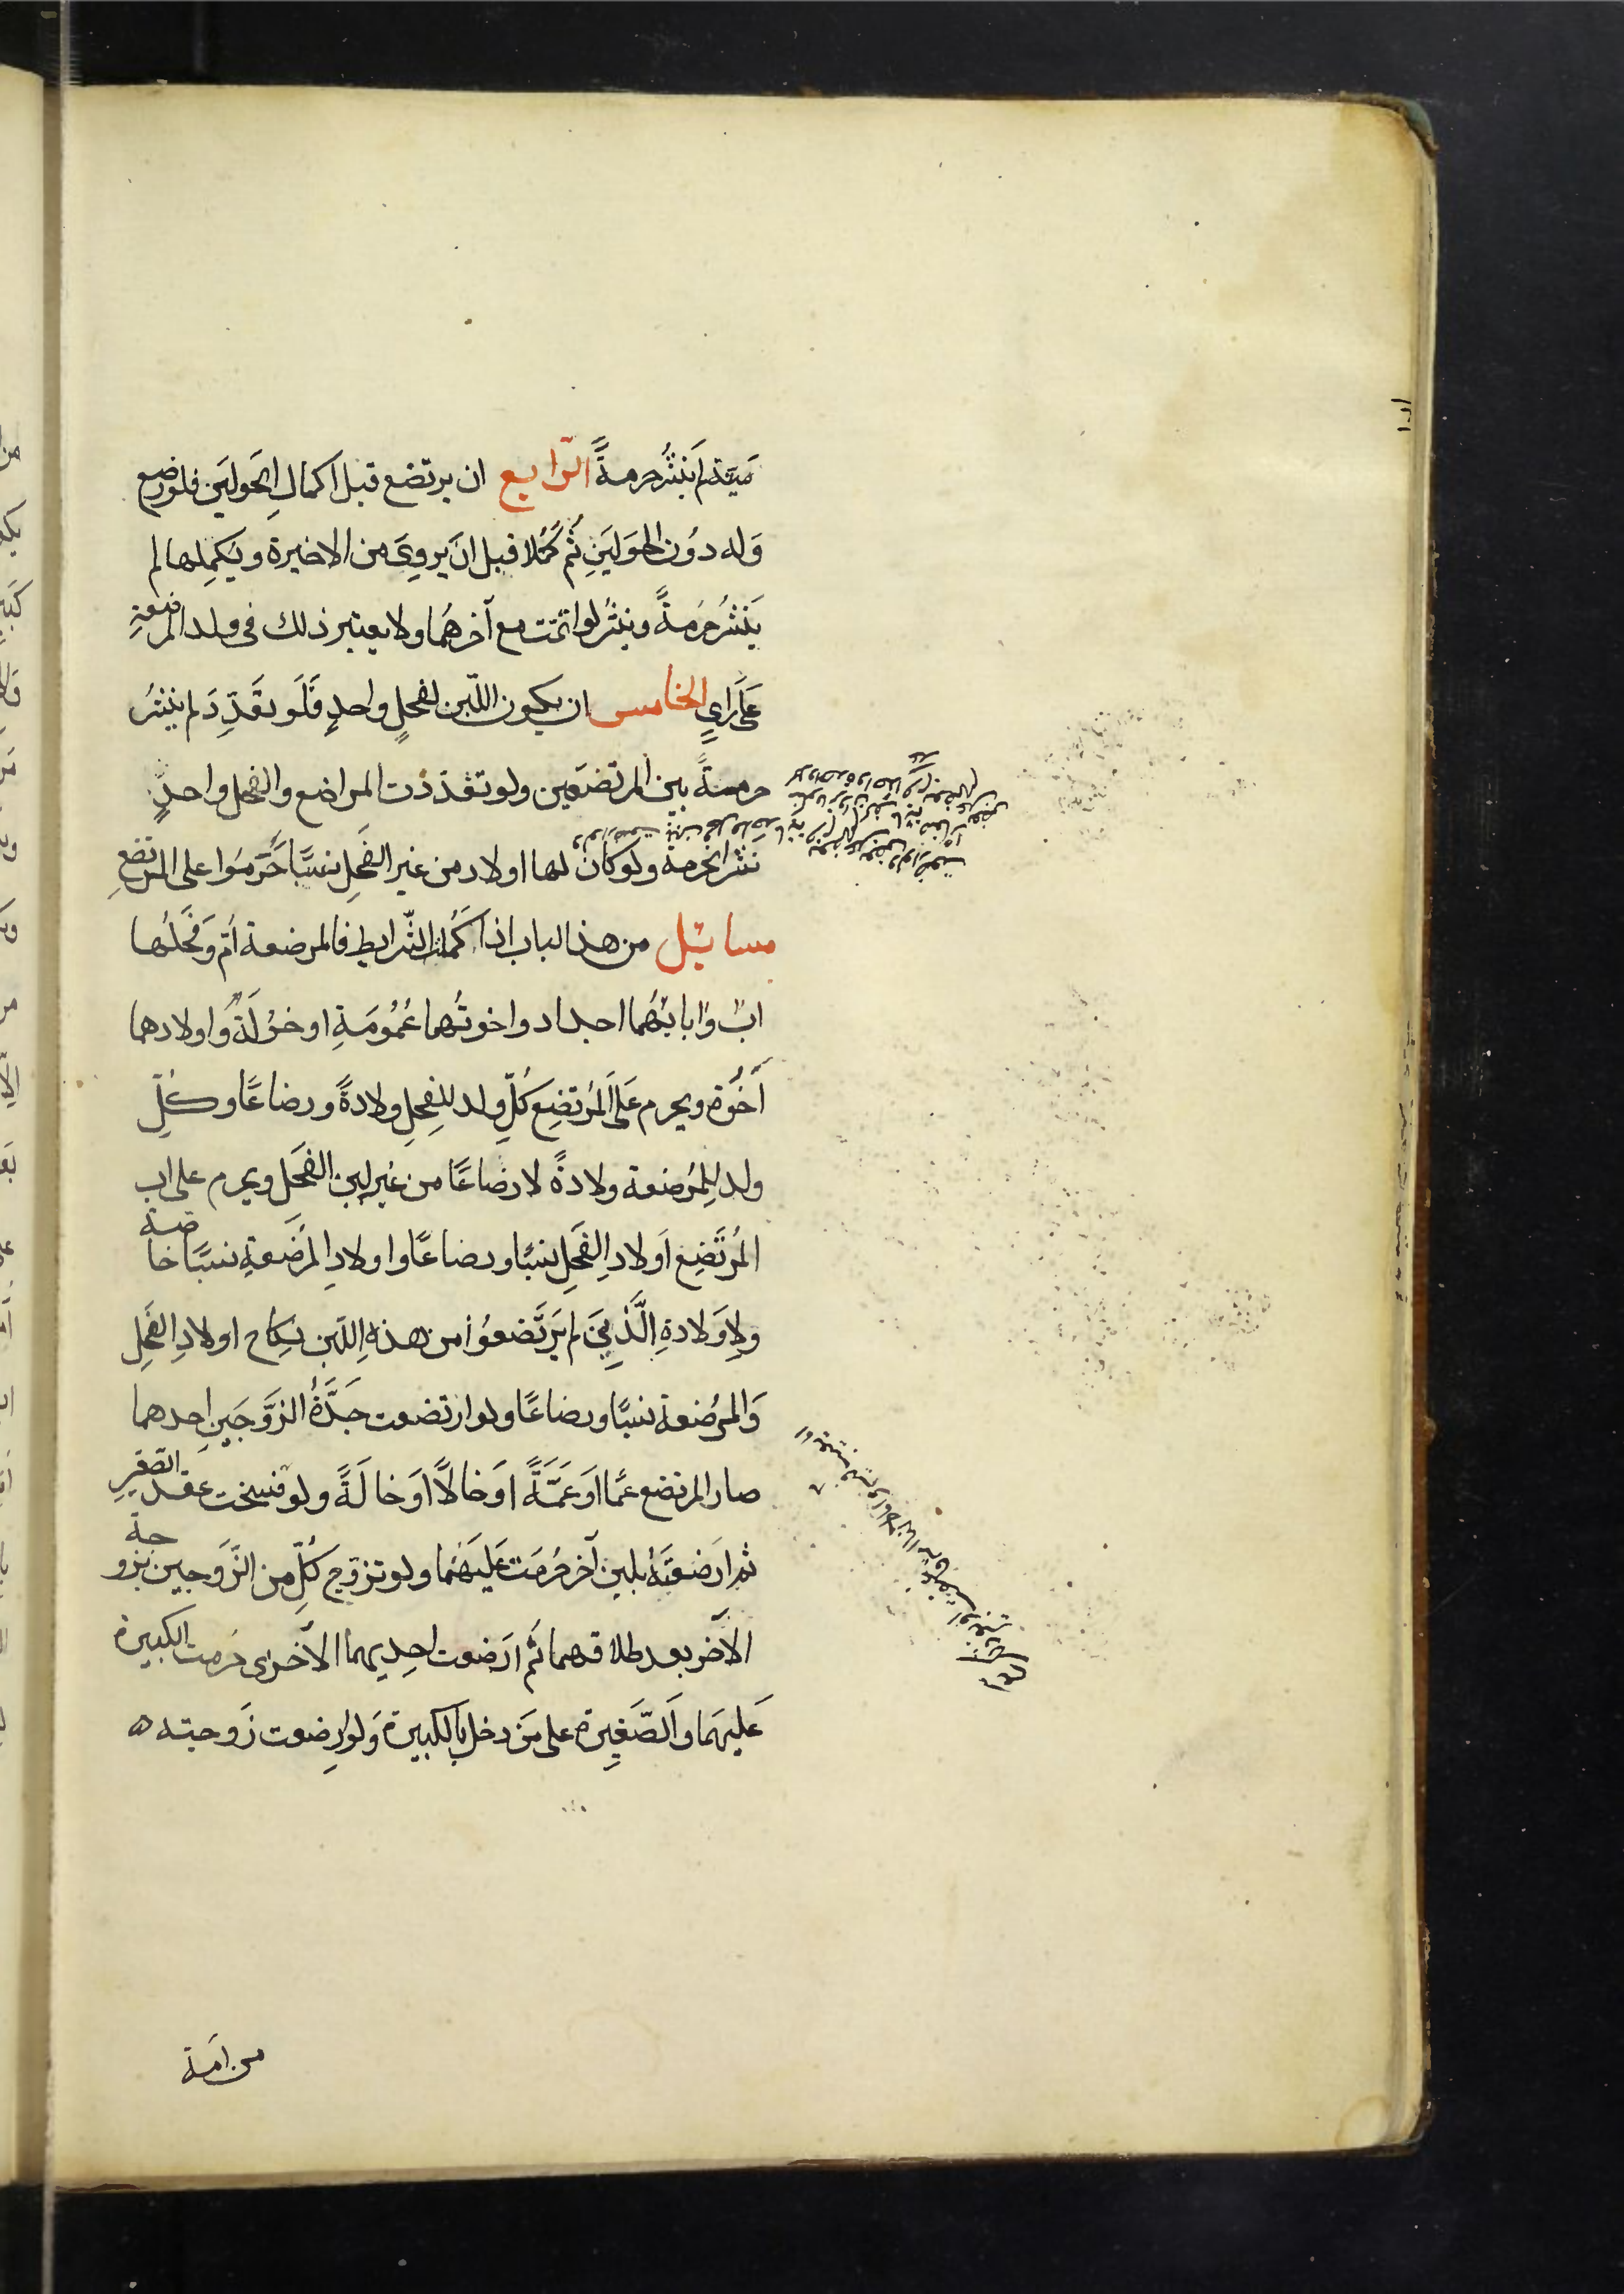 مَيّتة لم يَنشُر حرمةً الرّابع ان يرتضع قبل اكمالِ الحَولَين فلو رضع
وَله دوُن الحوَلَينِ ثُم كَمُلا قبل انَ يروِيَ من الاخيرة ويكمِلها لم
يَنشُر حُرمَةً وينشُر لو اتمّت مع آخرهُما ولا يعتبر ذلك فى ولد المرضعةِ
عَلَى رايٍ الخامس ان يكون اللّبن لفحلٍ واحدٍ فَلَو تعَدّدَ لم ينشُر
حرمةً بين المرتضعَين ولو تعدّدت المراضع والفحل واحدٌ
نشر الحرمة ولو كان لها اولاد من غير الفَحلِ نسبًا حَرّمَوُا على المرتضعِ
مسائل من هذا الباب اذا كَمُلت الشّرايط فالمرضعة اُمّ وَفحَلُها
ابٌ وَابائهُما اجداد واخوتُهما عُمُومَةِ او خوُلَةٌ وَاولادهما
اَخَوُة ويحرم عَلَى المُرتضِع كُلّ ولد للفحِلِ ولادةً ورضاعًا وكلّ
ولد لِلمُرضعة ولادةً لا رضاعًا من غير لبن الفَحَل ويحرم على اب
المُرتَضِع اَولادِ الفَحِل نسبًا ورضاعًا واولادِ المُرضَعةِ نسبًا خاصة
ولاِوَلادةِ الَّذيِنَ لم يَرتَضعوُا من هذهِ اللبن نكِاح اولادِ الفَحلِ
وَالمرُضعة نسبًا ورضاعًا ولو ارتضعت جَدَّةُ الزوَّجَينِ احدهما
صار المرتضع عمًّا اَو عَمَّةً اوَ خالًا اوَ خالَةً ولو فسخت عقد الصّغير
ثم ارَضعَتهُ بلبن آخر حُرمَت عَليَهمُا ولو تزوّج كُلّ من الزَوجين بزوجة
الآخر بعد طلاقهما ثُم ارَضعت احِديهما الآخرى حُرمت الكبيرة
عَليهمَا وَالصّغيرِة على مَن دخل بِالكبيرة وَلو ارضعت زَوجته
من امَة